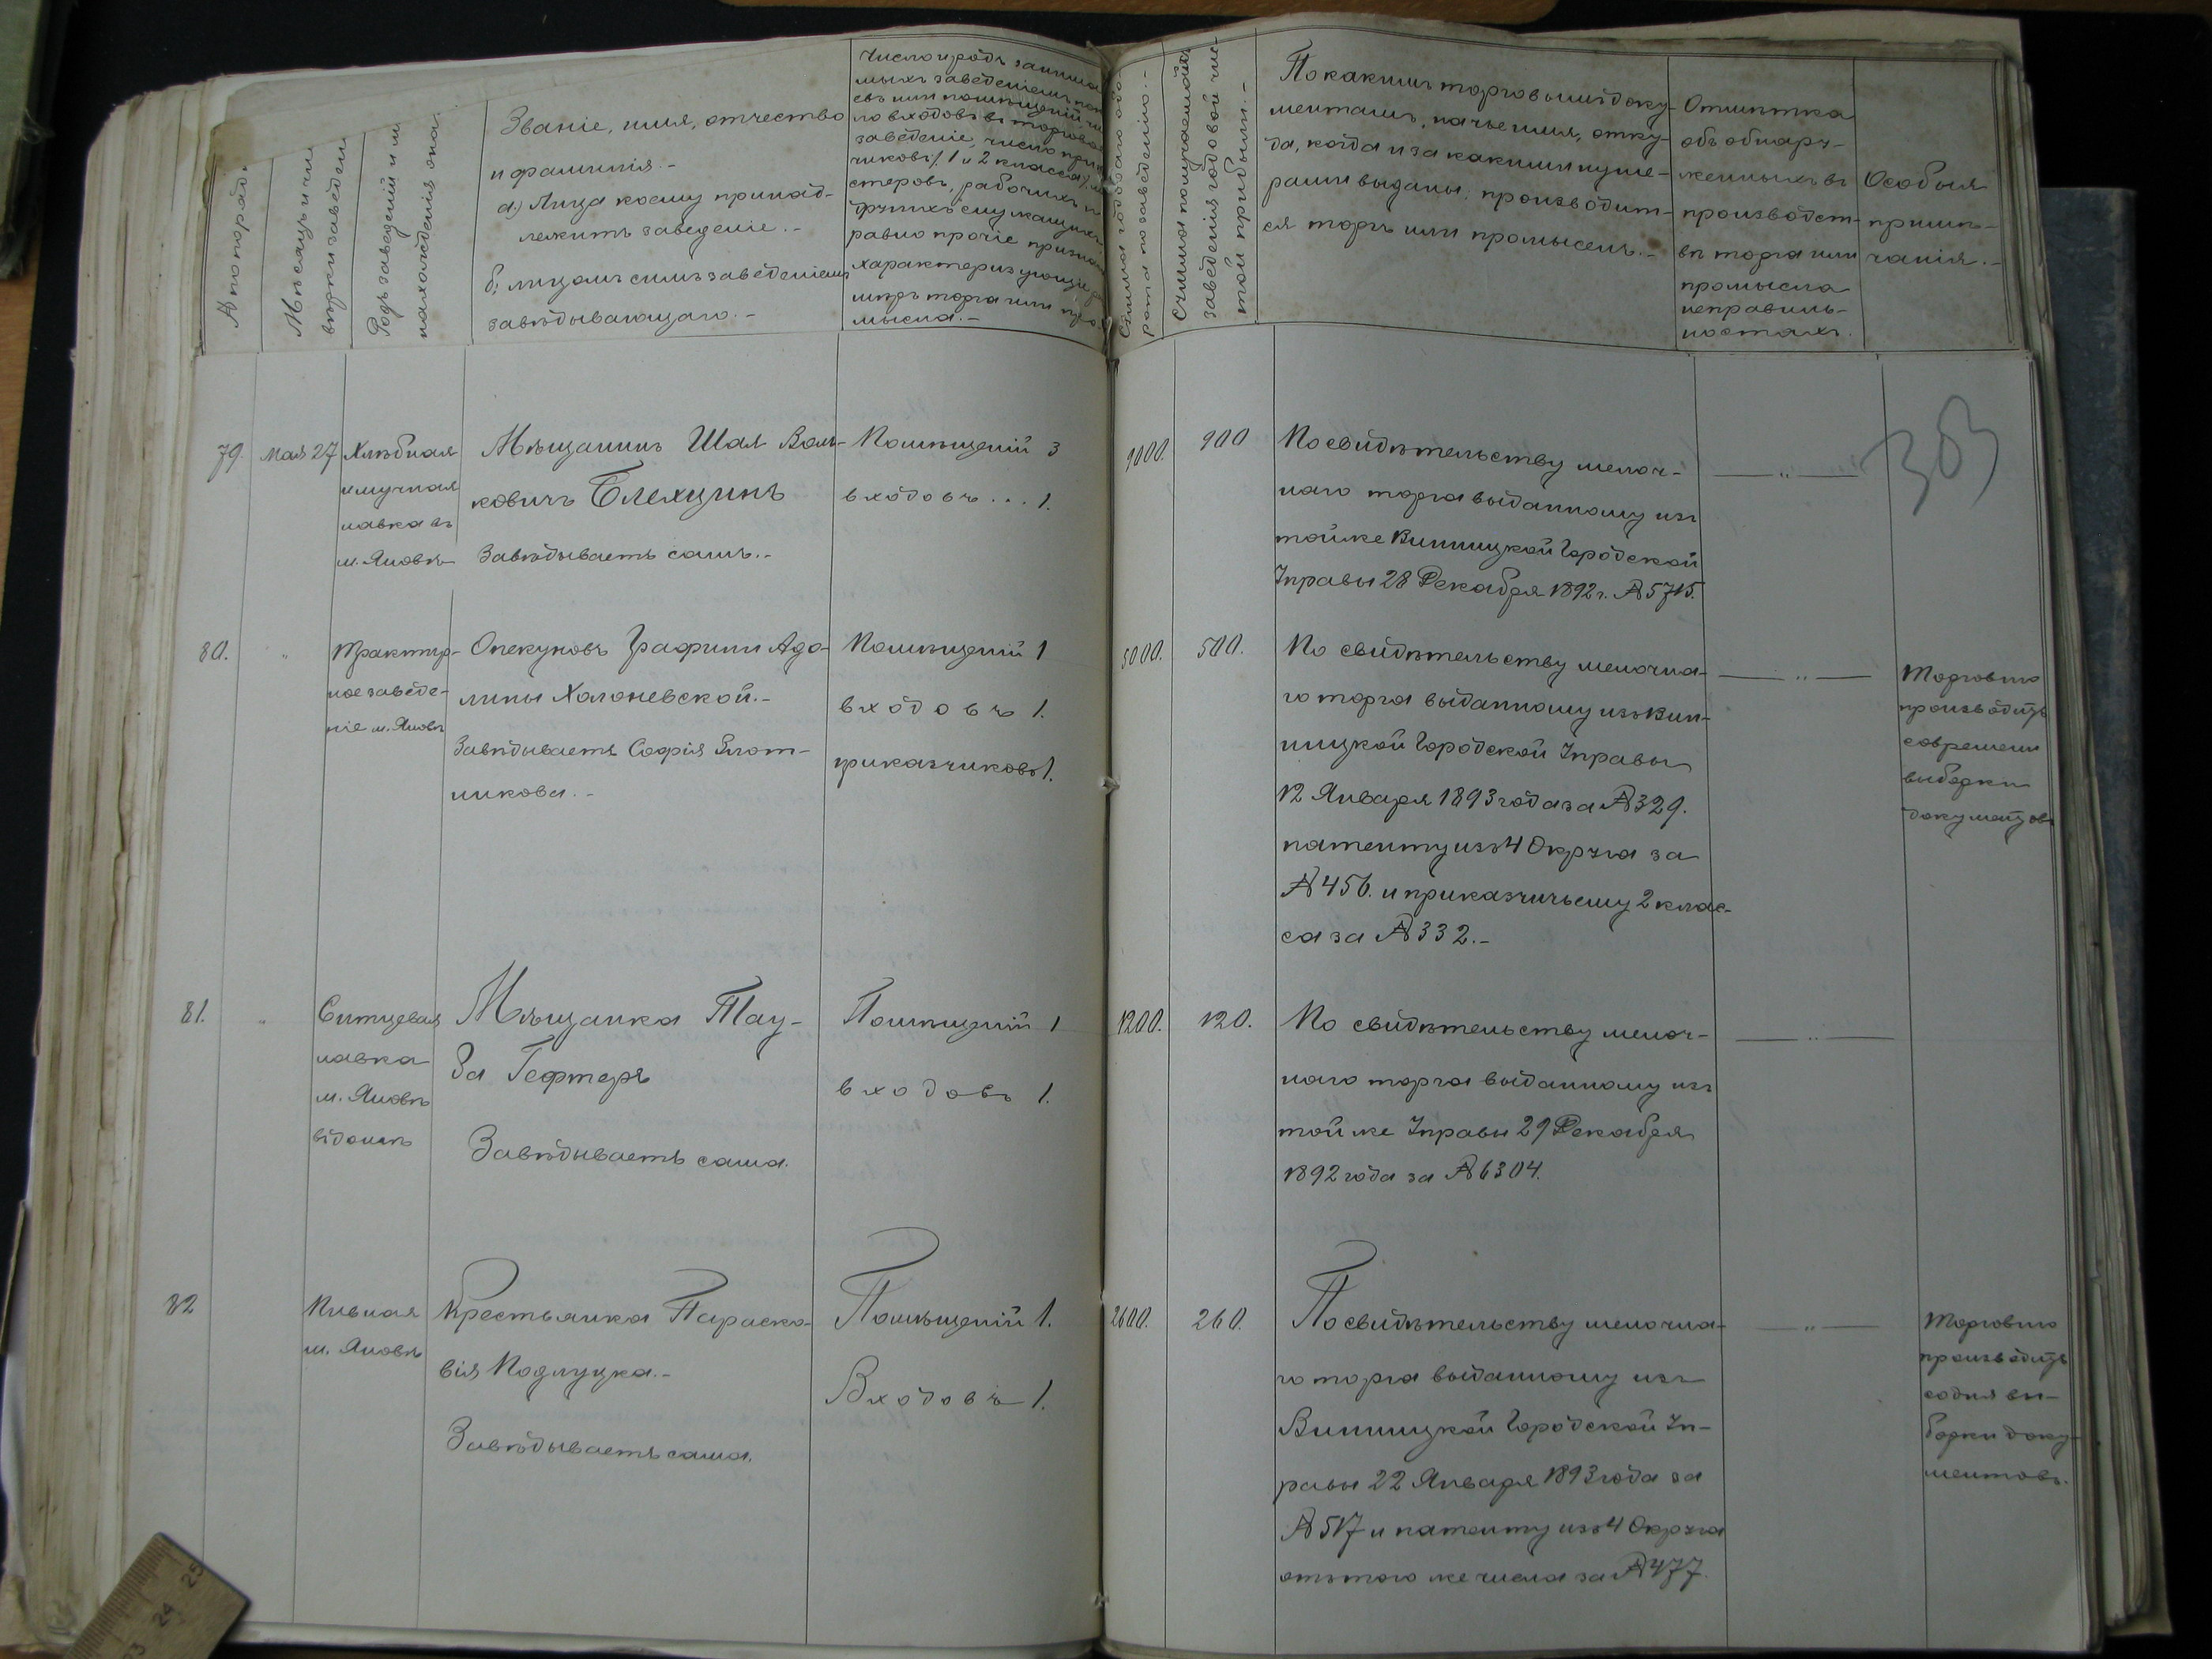 № по поряд
Мѣсяцъ и чи
вѣрки заведені
Родъ заведеній и м
нахожденія онаг
Званіе, имя, отчество
и фамилія.-
а) Лица коему принад-
лежитъ заведеніе.-
б; лицомъ симъ заведеніемъ
завѣдывающаго.-
Число и родъ занима
мыхъ заведеніемъ пок
евъ или помѣщеній чи
ло входовъ въ торгово
заведеніе, число при
чиковъ/. 1 и 2 класса/. м
стеровъ, рабочихъ и
другихъ служащихъ
равно прочіе призна
характеризующіе р
мѣръ торга или про
мысла.-
Сумма годоваго обо-
рота по заведенію.-
Сумма получаемой изъ
заведенія годовой чис-
той прибыли.-
По какимъ торговымъ доку-
ментамъ, на чье имя, отку-
да, когда и за какими нуме-
рами выданы, производит-
ся торгъ или промыселъ.-
Отмѣтка
объ обнару-
женныхъ въ
производст-
вѣ торга или
промысла
неправиль-
ностяхъ.
Особыя
примѣ-
чанія.-
363
79. Мая 27 Хлѣбная
и мучная
лавка въ
м. Яновѣ
Мѣщанинъ Шая Воль-
ковичъ Блехцинъ
Завѣдываетъ самъ.-
Помѣщеній 3
входовъ... 1.
9000. 900
По свидѣтельству мелоч-
наго торга выданному изъ
той же Винницкой Городской
Управы 28 Декабря 1892 г. № 5715.
—„—
80. „ Трактир-
ное заведе-
ніе м. Яновѣ
Опекуновъ Графини Адо-
лины Холоневской.-
Завѣдываетъ София Плот-
никова.-
Помѣщеній 1
входовъ 1.
приказчиковъ 1.
5000. 500.
По свидѣтельству мелочна-
го торга выданному изъ Вин-
ницкой Городской Управы
12 Января 1893 года за № 329.
патенту изъ 4 Округа за
№ 456. и приказчичьему 2 клас-
са за № 332.-
—„—
Торговлю
производитъ
со времени
выборки
документовъ
81. „ Ситцевая
лавка
м. Яновѣ
въ домѣ
Мѣщанка Тау-
ба Гефтеръ
Завѣдываетъ сама.
Помѣщеній 1
входовъ 1.
1200. 120.
По свидѣтельству мелоч-
наго торга выданному изъ
той же Управы 29 Декабря
1892 года за № 6304.
—„—
82 Пивная
м. Яновѣ
Крестьянка Параско-
вія Подлуцка.-
Завѣдываетъ сама.
Помѣщеній 1.
Входовъ 1.
2600. 260.
По свидѣтельству мелочна-
го торга выданному изъ
Винницкой Городской Уп-
равы 22 Января 1893 года за
№ 517 и патенту изъ 4 Округа
отъ того же числа за № 477.
—„—
Торговлю
производитъ
со дня вы-
борки доку-
ментовъ.
23 24 25